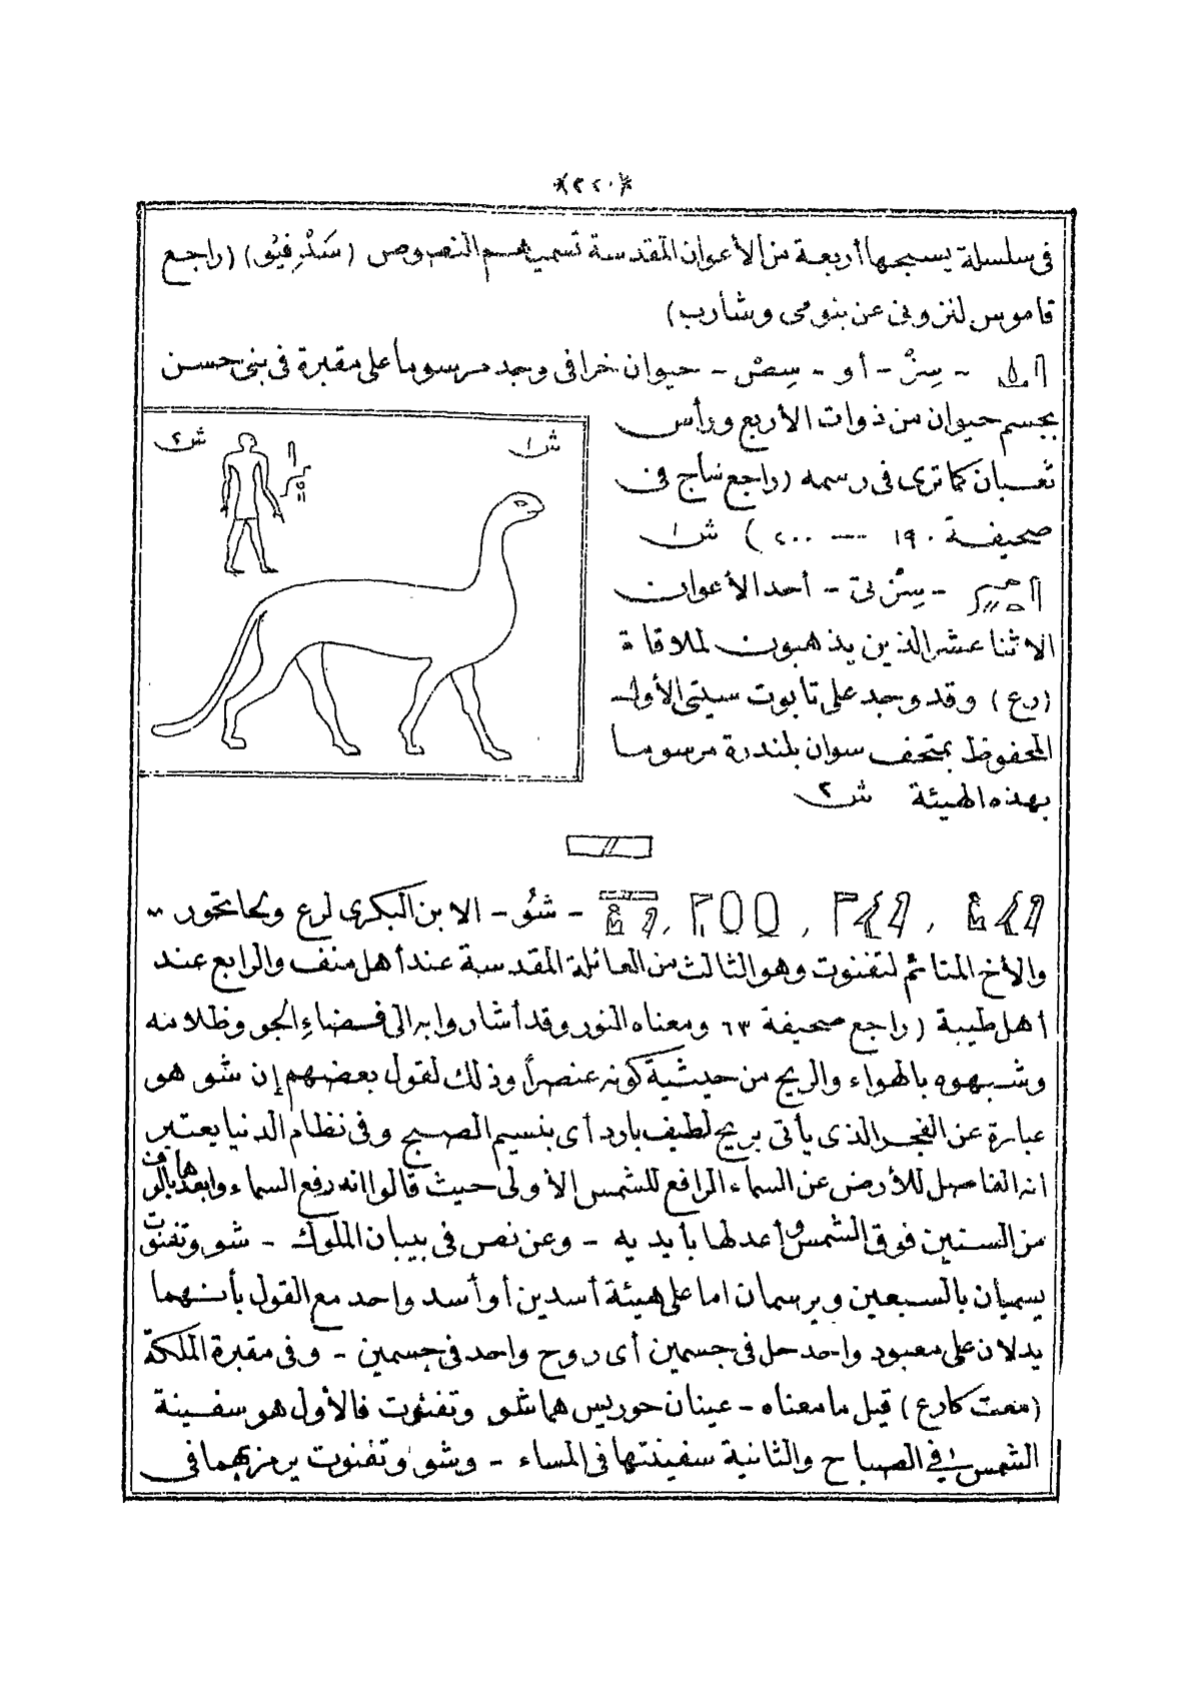 ﴿٢٢٠﴾
فى سلسلة يسحبها أربعة من الأعوان المقدسة تسميهم النصوص (سَتْدْفِيُو) (راجع
قاموس لنزونى عن بنومى وشارب)
- سِزْ - أو - سِصْ - حيوان خرافى وجد مرسوما على مقبرة فى بنى حسن
بجسم حيوان من ذوات الأربع ورأس
ثعبان كما ترى فى رسمه (راجع شاج فى
صحيفة ١٩٠ --- ٢٠٠) ش١
- سِزْتى - أحد الأعوان
الاثنا عشر الذين يذهبون لملاقاة
(رع) وقد وجد على تابوت سيتى الأول
المحفوظ بمتحف سوان بلندرة مرسوما
بهذه الهيئة ش٢
ش١
ش٢
- شُو - الابن البكرى لرع ولحاتحور --
والأخ المتائم لتفنوت وهو الثالث من العائلة المقدسة عند أهل منف والرابع عند
أهل طيبة (راجع صحيفة ٦٣ ومعناه النور وقد أشاروا به الى فضاء الجو وظلامه
وشبهوه بالهواء والريح من حيثية كونه عنصراً وذلك لقول بعضهم إن شو هو
عبارة عن الفجر الذى يأتى بريح لطيف بارد أى بنسيم الصبح وفى نظام الدنيا يعتبر
انه الفاصل للأرض عن السماء الرافع للشمس الأولى حيث قالوا انه رفع السماء وابعدها بالوف
من السنين فوق الشمس وأعدلها بأيديه - وعن نص فى بيبان الملوك - شو وتفنوت
يسميان بالسبعين ويرسمان اما على هيئة أسدين أو أسد واحد مع القول بأنهما
يدلان على معبود واحد حل فى جسمين أى روح واحد فى جسمين - وفى مقبرة الملكة
(معت كارع) قيل ما معناه - عينان حوريس هما شو وتفنوت فالأول هو سفينة
الشمس فى الصباح والثانية سفينتها فى المساء - وشو وتفنوت يرمز بهما فى